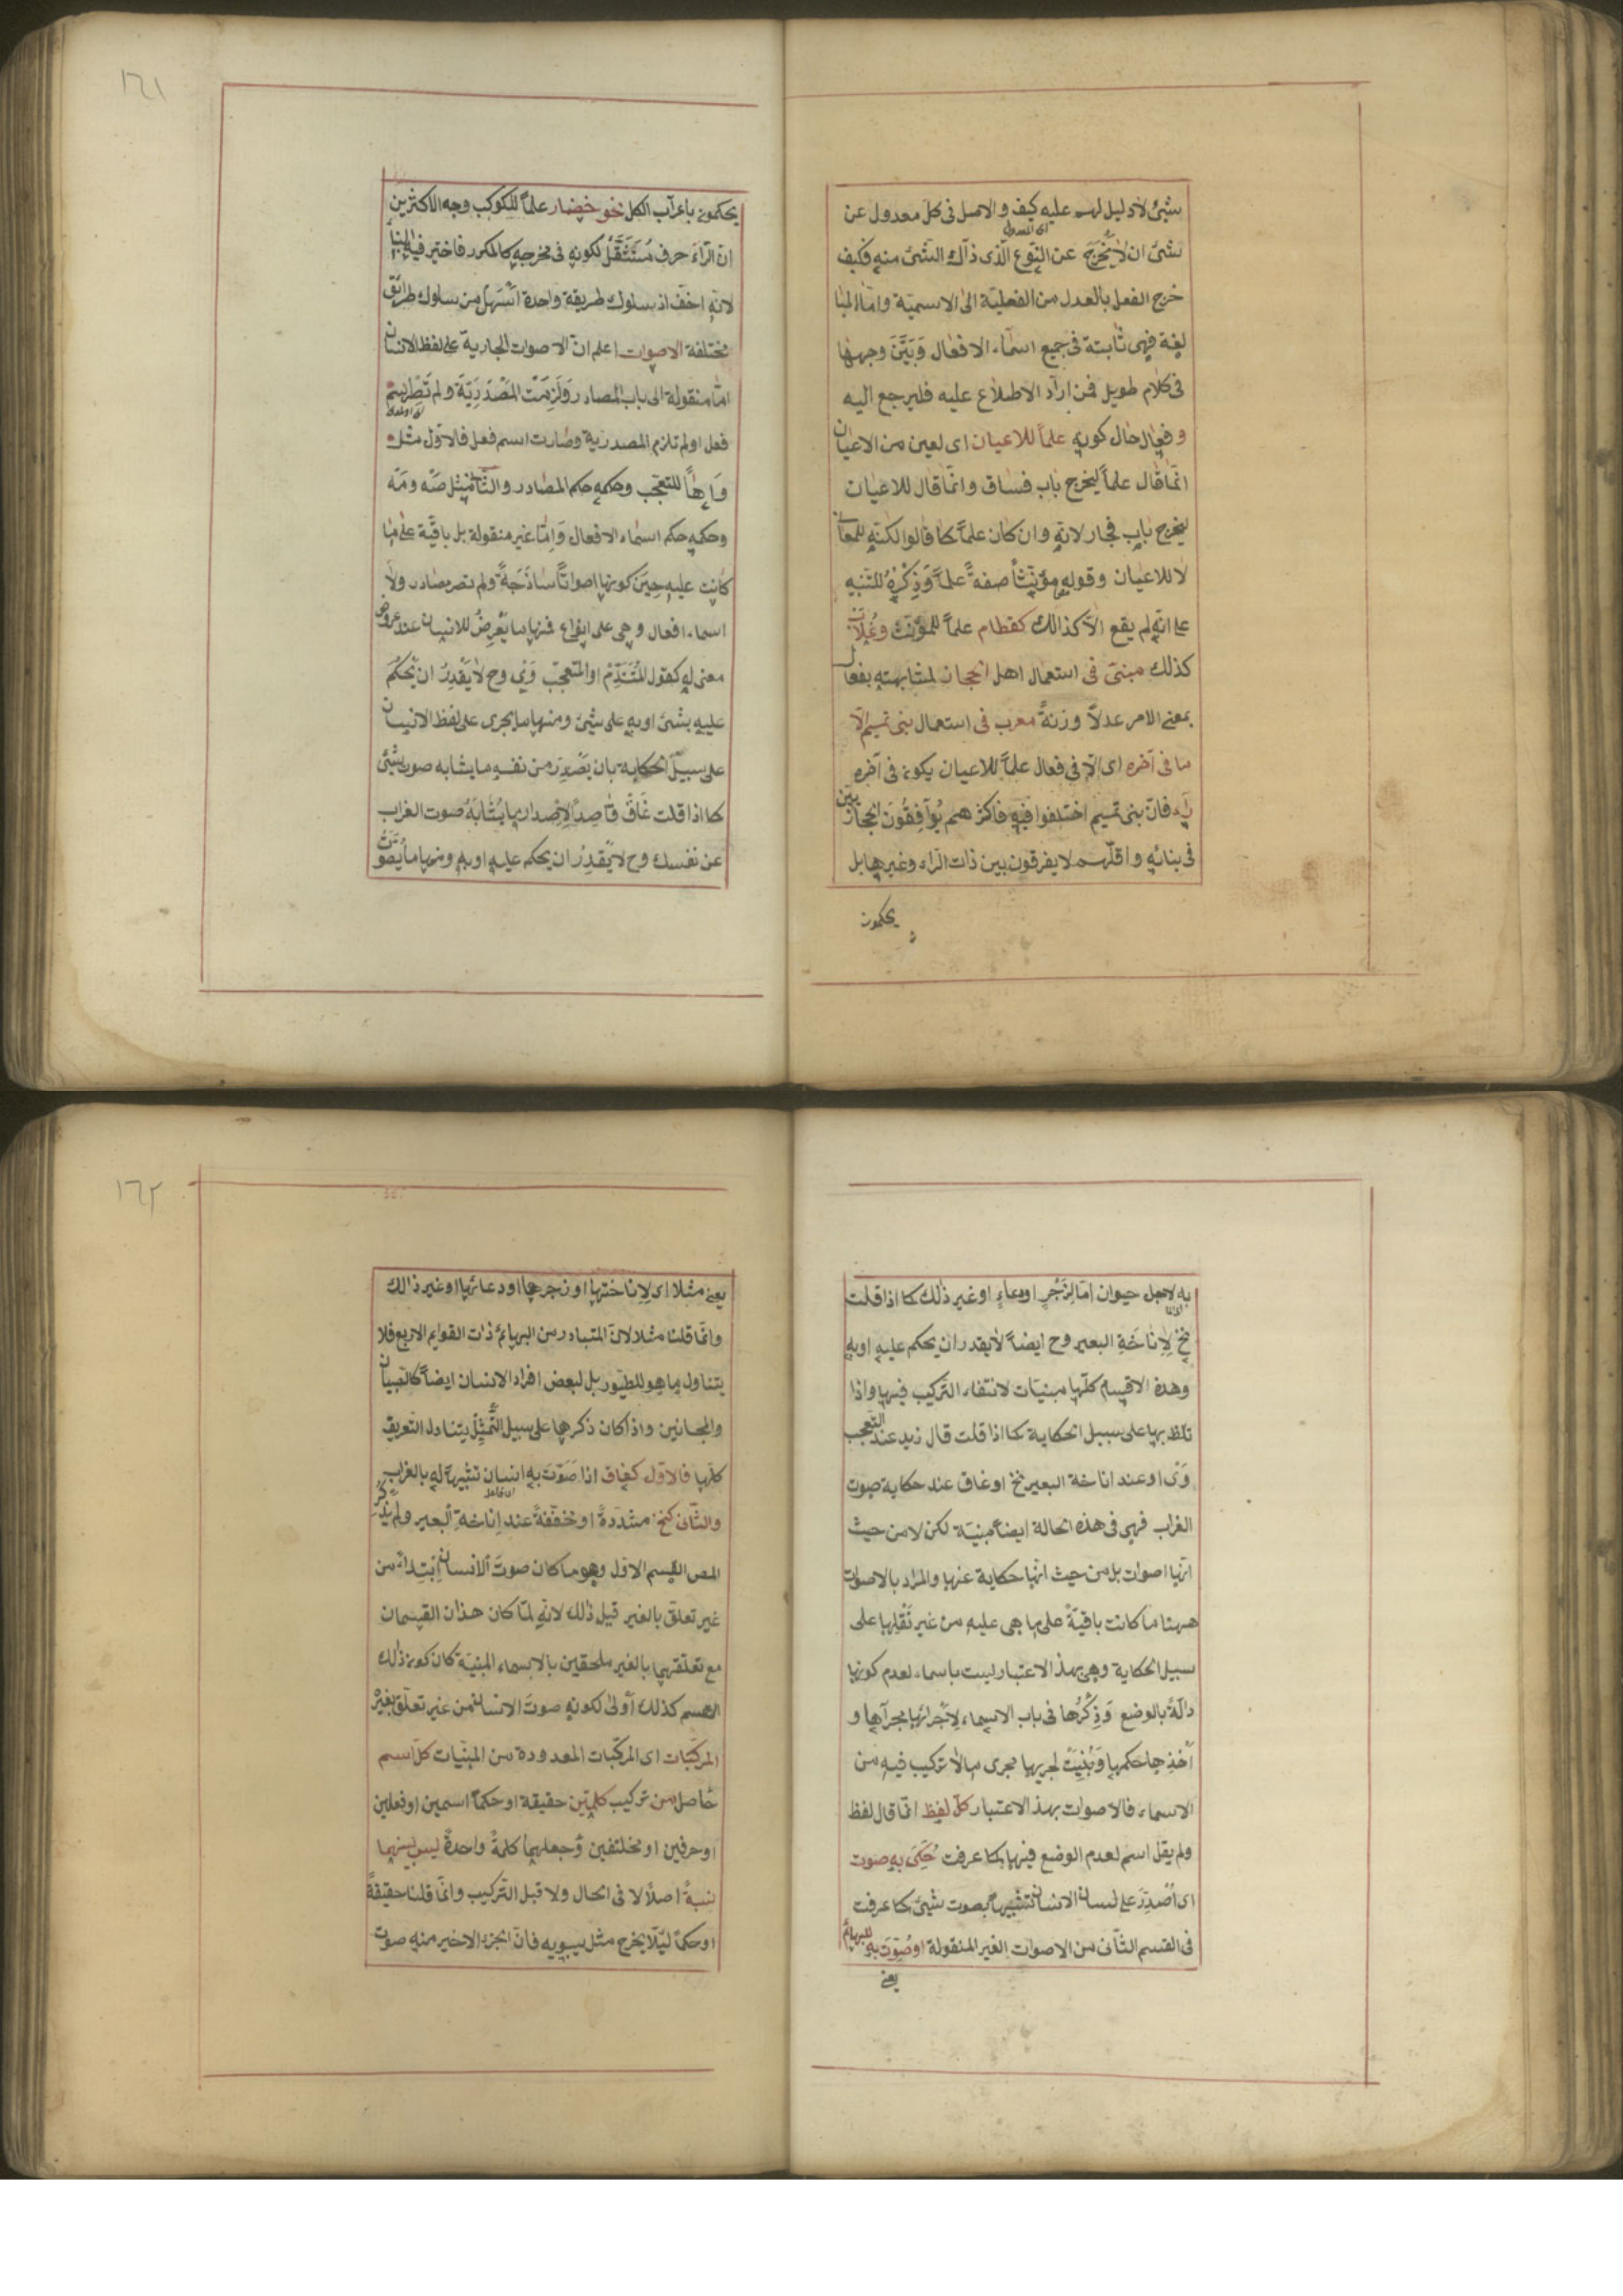 شئ لا دليل لهم عليه كيف والاصل فى كل معدول عن
شئ ان لا يخرج عن النوع الذى ذلك الشئ منه فكيف
خرج الفعل بالعدل من الفعلية الى الاسمية واما المبا
لغة فهى ثابتة فى جميع اسماء الافعال وبيّن وجهها
فى كلام طويل فمن اراد الاطلاع عليه فليرجع اليه
وفعال حال كونه علماً للاعيان اى لعين من الاعيان
انما قال علماً ليخرج باب فساق وانما قال للاعيان
ليخرج باب فجار لانه وان كان علماً كما قالوا لكنه للمعانى
لا للاعيان وقوله مؤنثاً صفة علماً وذِكْرُهُ للتنبيه
على انه لم يقع الا كذالك كقطام علماً للمؤنث وغلاب
كذلك مبنى فى استعمال اهل الحجاز لمشابهته بفعال
بمعنى الامر عدلاً وزنةً معرب فى استعمال بنى تميم الّا
ما فى آخره اى الا فى فعال علماً للاعيان يكون فى آخره
راء فان بنى تميم اختلفوا فيه فاكثرهم يوافقون الحجازيين
فى بنائه واقلهم لا يفرقون بين ذات الراء وغيرها بل
يحكمون
١٦١
يحكمون باعراب الكل نحو حضار علماً للكوكب وجه الاكثرين
ان الراء حرف مستثقل لكونه فى مخرجه كالمكرر فاختير فيه البناء
لانه اخف اذ سلوك طريقة واحدة اسهل من سلوك طرائق
مختلفة الاصوات اعلم ان الاصوات الجارية على لفظ الانسان
اما منقولة الى باب المصادر ولزمت المصدرية ولم تصر اسم
فعل او لم تلزم المصدرية وصارت اسم فعل فالاول مثل
واهاً للتعجب وحكمه حكم المصادر والثانى مثل صه ومه
وحكمه حكم اسماء الافعال واما غير منقولة بل باقية على ما
كانت عليه حين كونها اصواتاً ساذجة ولم تصر مصادر ولا
اسماء افعال وهى على انواع فمنها ما يعرض للانسان عند عروض
معنى له كقول المتندم او المتعجب وى وح لا يقدر ان يحكم
عليه بشئ او به على شئ ومنها ما يجرى على لفظ الانسان
على سبيل الحكاية بان يصدر من نفسه ما يشابه صوت شئ
كما اذا قلت غاق قاصداً لاصدار ما يشابه صوت الغراب
عن نفسك وح لا يقدر ان يحكم عليه او به ومنها ما يصوت
به لاجل حيوان اما لزجر او دعاء او غير ذلك كما اذا قلت
نخ لاناخة البعير وح ايضاً لا يقدر ان يحكم عليه او به
وهذه الاقسام كلها مبنيات لانتفاء التركيب فيها واذا
تلفظ بها على سبيل الحكاية كما اذا قلت قال زيد عند التعجب
وى او عند اناخة البعير نخ او غاق عند حكاية صوت
الغراب فهى فى هذه الحالة ايضاً مبنية لكن لا من حيث
انها اصوات بل من حيث انها حكاية عنها والمراد بالاصوات
ههنا ما كانت باقية على ما هى عليه من غير نقلها على
سبيل الحكاية وهى بهذا الاعتبار ليست باسماء لعدم كونها
دالة بالوضع وذكرها فى باب الاسماء لاجرائها مجراها و
اخذها حكمها وبنيت لجريها مجرى ما لا تركيب فيه من
الاسماء فالاصوات بهذا الاعتبار كل لفظ انما قال لفظ
ولم يقل اسم لعدم الوضع فيها كما عرفت حكى به صوت
اى اصدر على لسان الانسان تشبيهاً بصوت شئ كما عرفت
فى القسم الثانى من الاصوات الغير المنقولة او صوت به للبهائم
يعنى
١٦٢
يعنى مثلا اى لاناختها او زجرها او دعائها او غير ذالك
وانما قلنا مثلا لان المتبادر من البهائم ذات القوايم الاربع فلا
يتناول ما هو للطيور بل لبعض افراد الانسان ايضاً كالصبيان
والمجانين واذا كان ذكرها على سبيل التمثيل يتناول التعريف
كلها فالاول كغاق اذا صوت به انسان تشبيهاً له بالغراب
والثانى كنخ مشددة او مخففة عند اناخة البعير ولم يذكر
المص القسم الاول وهو ما كان صوت الانسان ابتداء من
غير تعلق بالغير قيل ذلك لانه لما كان هذان القسمان
مع تعلقهما بالغير ملحقين بالاسماء المبنية كان كون ذلك
القسم كذلك اولى لكونه صوت الانسان من غير تعلق بغيره
المركبات اى المركبات المعدودة من المبنيات كل اسم
حاصل من تركيب كلمتين حقيقة او حكماً اسمين او فعلين
او حرفين او مختلفين وجعلهما كلمة واحدة ليس بينهما
نسبة اصلاً لا فى الحال ولا قبل التركيب وانما قلنا حقيقة
او حكماً ليلا يخرج مثل سيبويه فان الجزء الاخير منه صوت